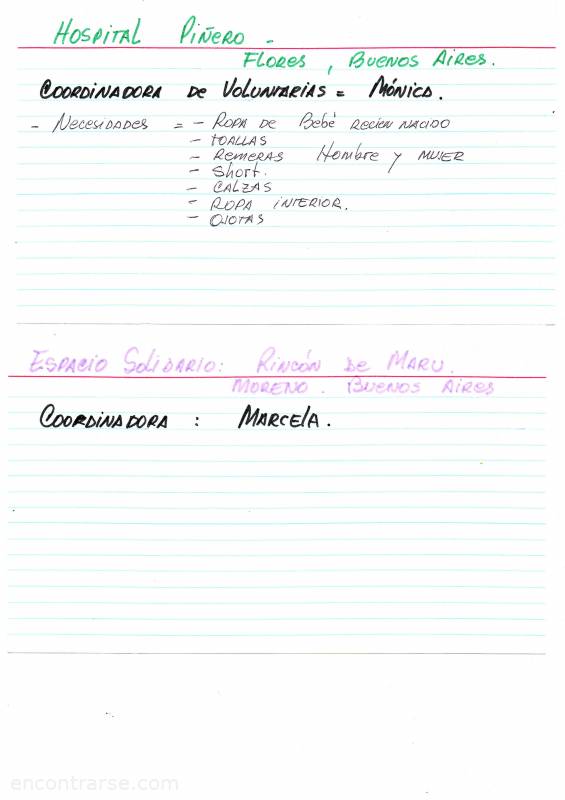 Hospital Piñero -
Flores, Buenos Aires.
Coordinadora de Voluntarias = Mónica.
- Necesidades = - Ropa de Bebé recien nacido
- Toallas
- Remeras Hombre y mujer
- Short.
- Calzas
- Ropa interior.
- Ojotas
Espacio Solidario: Rincón de Maru.
Moreno. Buenos Aires
Coordinadora : Marcela.
encontrarse.com